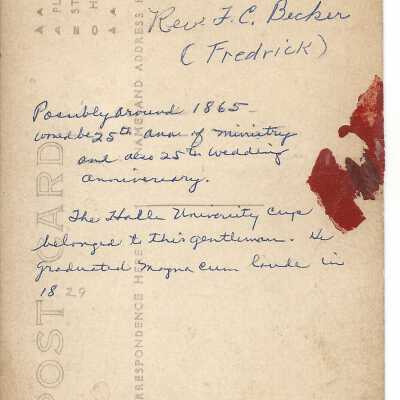 Rev. F. C. Becker
(Fredrick)
Possibly around 1865 -
would be 25th anni of ministry
and also 25th wedding
anniversary.
The Halle University cup
belonged to this gentleman. He
graduated Magna cum laude in
1829
POST CARD
CORRESPONDENCE HERE
NAME AND ADDRESS H